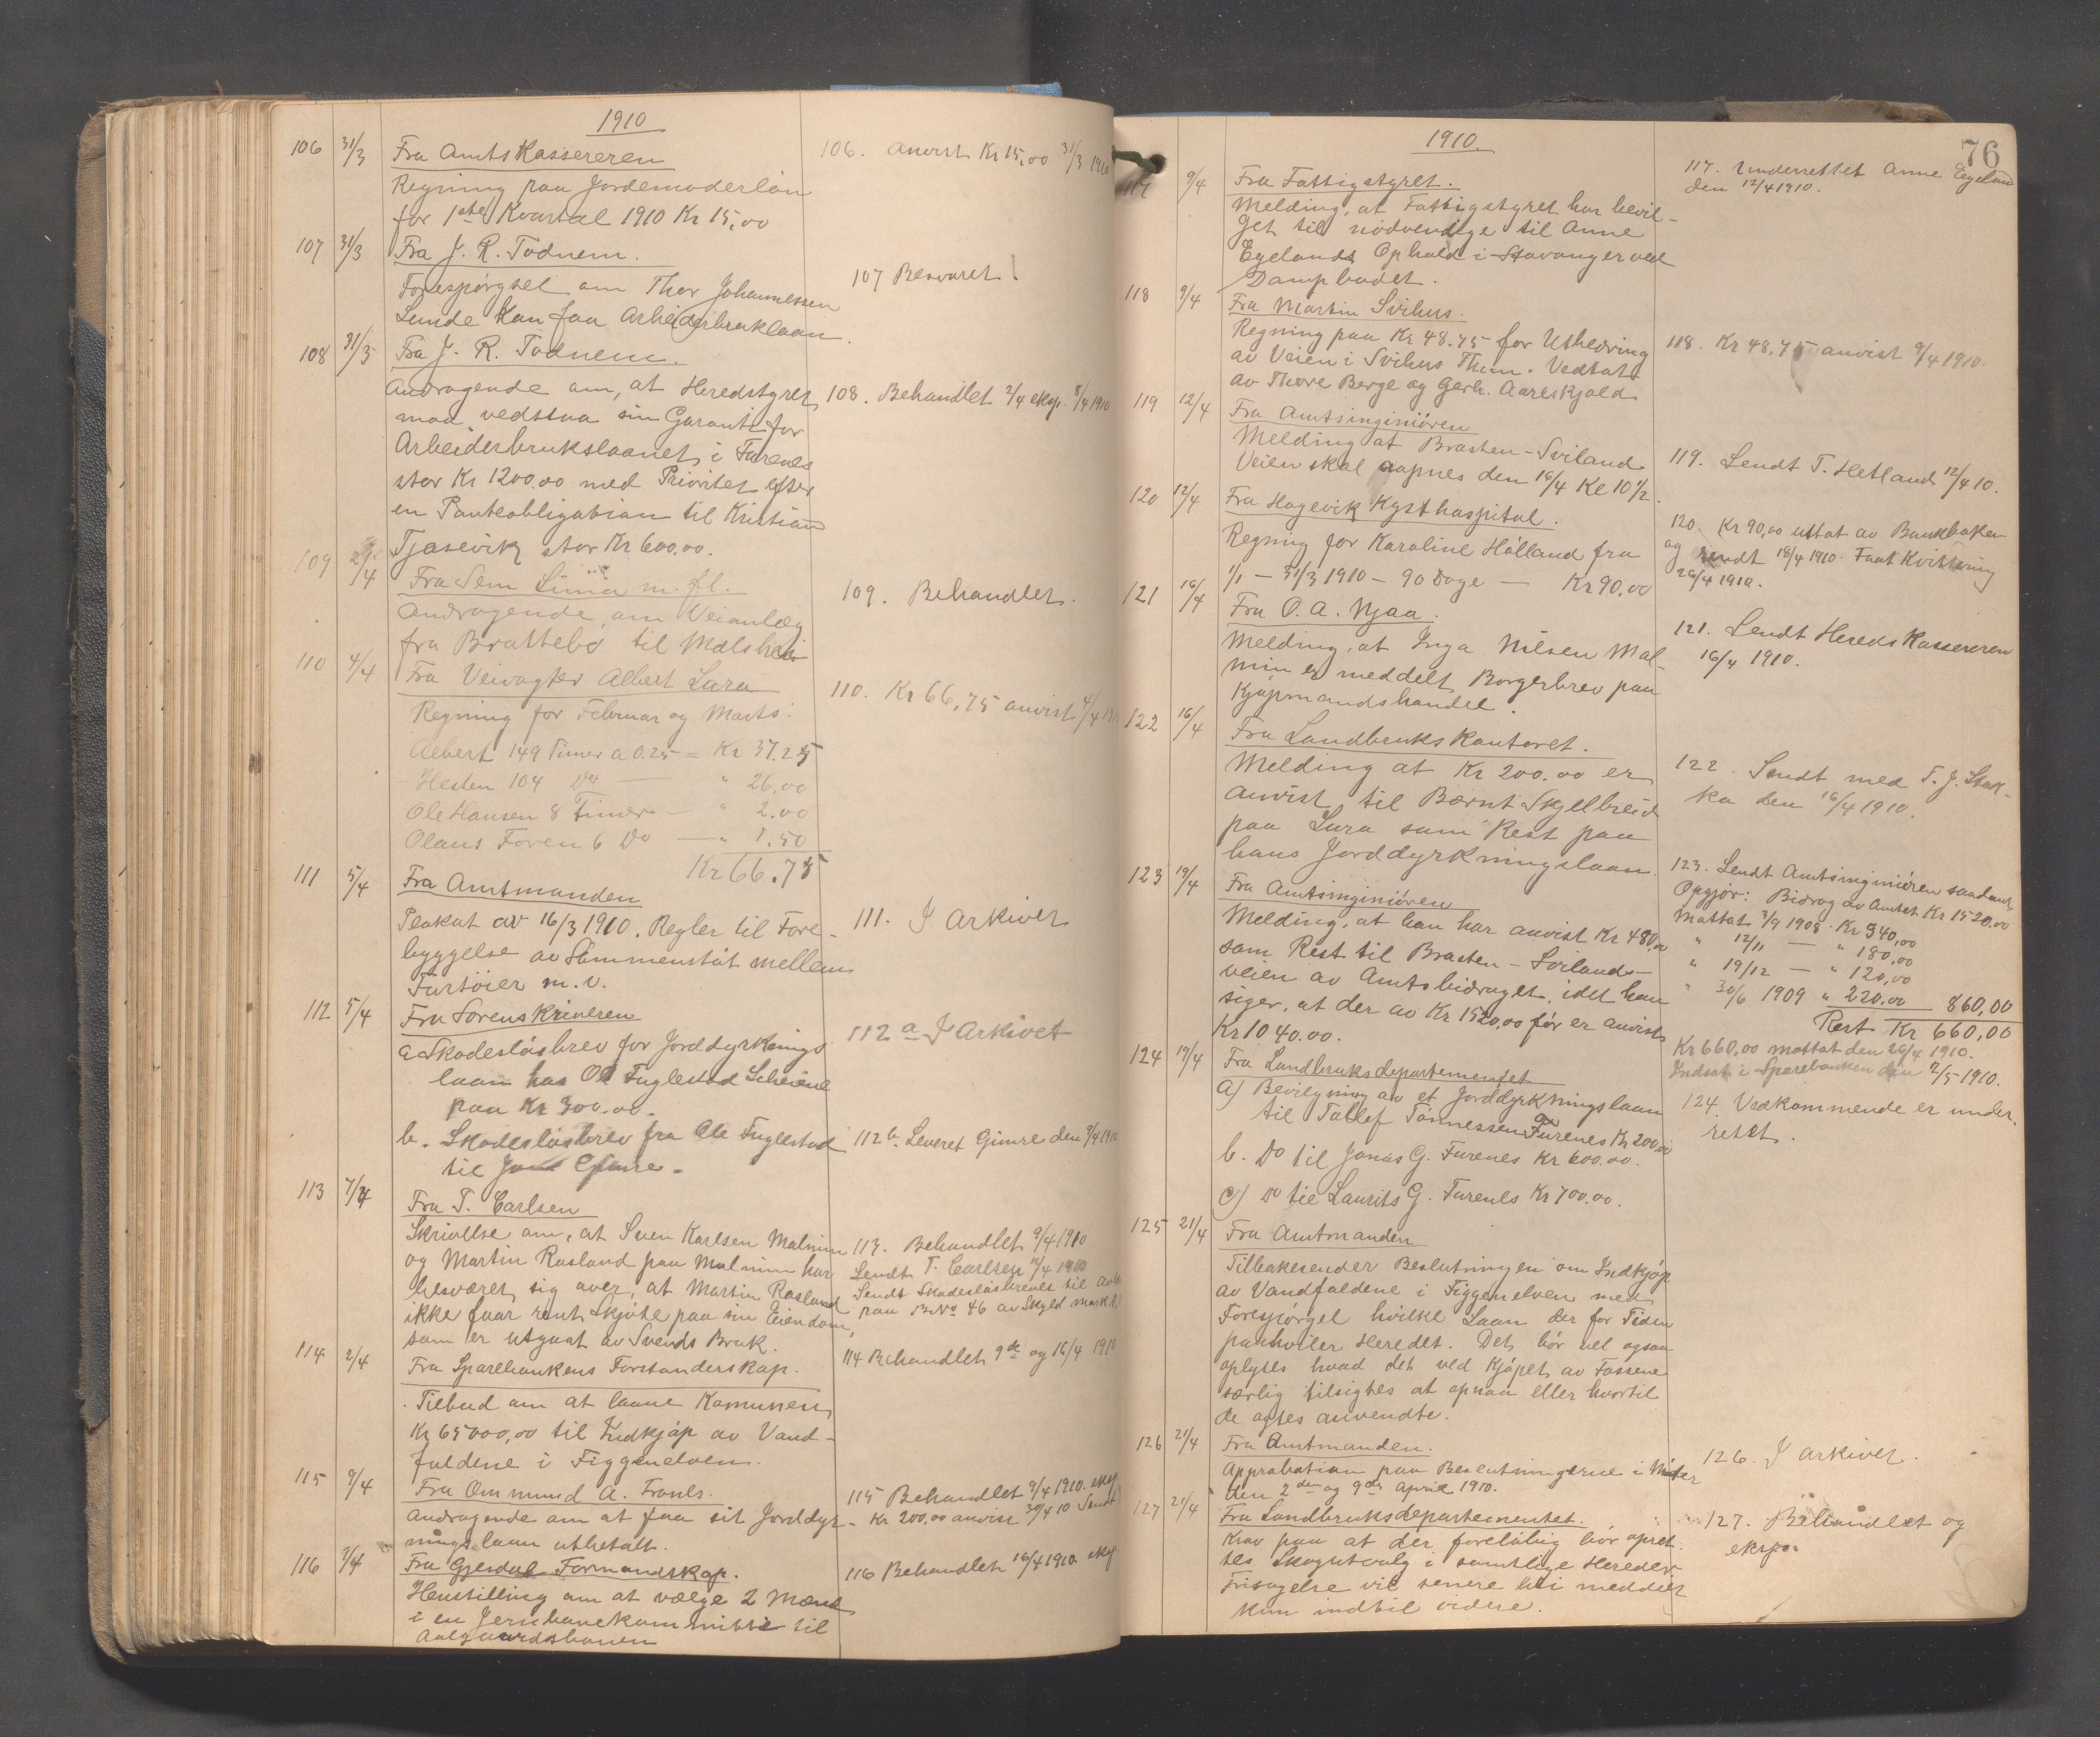 1910
106 31/3 Fra Amtskassereren
Regning paa Jordemoderløn
for 1ste Kvartal 1910 Kr 15,00
106. Anvist Kr 15,00 31/3 1910
107 31/3 Fra J. R. Todnem.
Forespørgsel om Thor Johannessen
Lunde kan faa Arbeiderbruklaan.
107 Besvaret.
108 31/3 Fra J. R. Todnem.
Andragende om, at Heredstyret
maa vedstaa sin Garanti for
Arbeiderbrukslaanet i Furenes
stor Kr 1200.00 med Prioritet efter
en Panteobligation til Kristian
Tjasevik stor Kr 600.00.
108. Behandlet 2/4 eksp. 8/4 1910
109 2/4 Fra Sem Lima m. fl.
Andragende om Veianlæg
fra Brattebø til Mælshei
109. Behandlet.
110 4/4 Fra Veivogter Albert Lura
Regning for Februar og Marts:
Albert 149 Timer a 0.25 = Kr 37.25
Hesten 104 Do — " 26.00
Ole Hansen 8 Timer — " 2.00
Olaus Foren 6 Do — " 1.50
Kr 66.75
110. Kr 66,75 anvist 4/4 1910
111 5/4 Fra Amtmanden
Plakat av 16/3 1910. Regler til Fore-
byggelse av Sammenstøt mellem
Fartøier m. v.
111. I Arkivet
112 5/4 Fra Sorenskriveren
a. Skadesløsbrev for Jorddyrknings
laan hos Ole Fuglestad Scheiene
paa Kr 300.00.
b. Skadesløsbrev fra Ole Fuglestad
til Gimre.
112 a I Arkivet
112 b. Leveret Gimre den 9/4 1910
113 7/4 Fra T. Carlsen
Skrivelse om, at Sven Karlsen Malmin
og Martin Rosland paa Malmin har
besværet sig over, at Martin Rosland
ikke faar rent Skjøte paa sin Eiendom,
som er utgaat av Svends Bruk.
113. Behandlet 9/4 1910
Sendt T. Carlsen 11/4 1910
Sendt Skadesløsbrevet til
paa BrNo 46 av Skyld mark
114 2/4 Fra Sparebankens Forstanderskap.
Tilbud om at laane Komunen
Kr 65000,00 til Indkjøp av Vand-
faldene i Figgenelven.
114 Behandlet 9de og 16/4 1910
115 9/4 Fra Ommund A. Trones.
Andragende om at faa sit Jorddyr-
nings laan utbetalt.
115 Behandlet 9/4 1910. eksp.
Kr 200,00 anvist 30/4 10 Sendt
116 9/4 Fra Gjesdal Formandskap.
Henstilling om at vælge 2 Mænd
i en Jernbanekommitte til
Aalgaardsbanen
116 Behandlet 16/4 1910. eksp.
1910.
76
117 9/4 Fra Fattigstyret.
Melding, at Fattigstyret har bevil-
get til nødvendige til Anne
Egelands Ophold i Stavanger ved
Dampbadet.
117. Underrettet Anne Egeland
den 12/4 1910.
118 9/4 Fra Martin Svihus.
Regning paa Kr 48.75 for Utbedring
av Veien i Svihus Thun. Vedtat
av Thore Berge og Gerh. Aareskjold
118. Kr 48,75 anvist 9/4 1910.
119 12/4 Fra Amtsinginiøren
Melding at Brasten-Sviland
Veien skal aapnes den 16/4 Kl 10 1/2.
119. Sendt T. Hetland 12/4 10.
120 12/4 Fra Hagevik Kysthospital.
Regning for Karoline Hålland fra
1/1 — 31/3 1910 – 90 Dage — Kr 90.00
120. Kr 90,00 uttat av Bankboken
og sendt 18/4 1910. Faat Kvittering
26/4 1910.
121 16/4 Fra O. A. Njaa.
Melding, at Inga Nilsen Mal-
min er meddelt Borgerbrev paa
Kjøpmandshandel.
121. Sendt Hereds Kassereren
16/4 1910.
122 16/4 Fra Landbrukskontoret.
Melding at Kr 200.00 er
anvist til Bernt Skjelbreid
paa Lura som Rest paa
hans Jorddyrkningslaan.
122. Sendt med T. J. Stok-
ka den 16/4 1910.
123 19/4 Fra Amtsinginiøren
Melding, at han har anvist Kr 480,00
som Rest til Brasten – Sorlands-
veien av Amtsbidraget, idet han
siger, at der av Kr 1520,00 før er anvist
Kr 1040.00.
123. Sendt Amtsinginiøren saadant
Opgjør: Bidrag av Amtet Kr 1520.00
Mottat 3/9 1908. Kr 340,00
" 12/11 — " 180,00
" 19/12 — " 120,00
" 30/6 1909 " 220.00 860,00
Rest Kr 660,00
Kr 660,00 mottat den 26/4 1910.
Indsat i Sparebanken den 2/5 1910.
124 19/4 Fra Landbruksdepartementet
a) Bevilgning av et Jorddyrkningslaan
til Tollef Tønnessen Furenes Kr 200.00
b. Do til Jonas G. Furenes Kr 600.00.
c) Do til Laurits G. Furenes Kr 700.00.
124. Vedkommende er under-
rettet.
125 21/4 Fra Amtmanden
Tilbakesender Beslutningen om Indkjøp
av Vandfaldene i Figgenelven med
Forespørgel hvilke Laan der for Tiden
paahviler Heredet. Det bør vel ogsaa
oplyses hvad det ved Kjøpet av Fossene
særlig tilsigtes at opnaa eller hvortil
de agtes anvendte.
126 21/4 Fra Amtmanden.
Approbation paa Beslutningerne i Møter
den 2den og 9de April 1910.
126. I Arkivet.
127 21/4 Fra Landbruksdepartementet.
Krav paa at der foreløbig bør opret-
tes Skogutvalg i samtlige Hereder
Frisagelse vil senere bli meddelt
kun indtil videre.
127. Behandlet og
eksp.